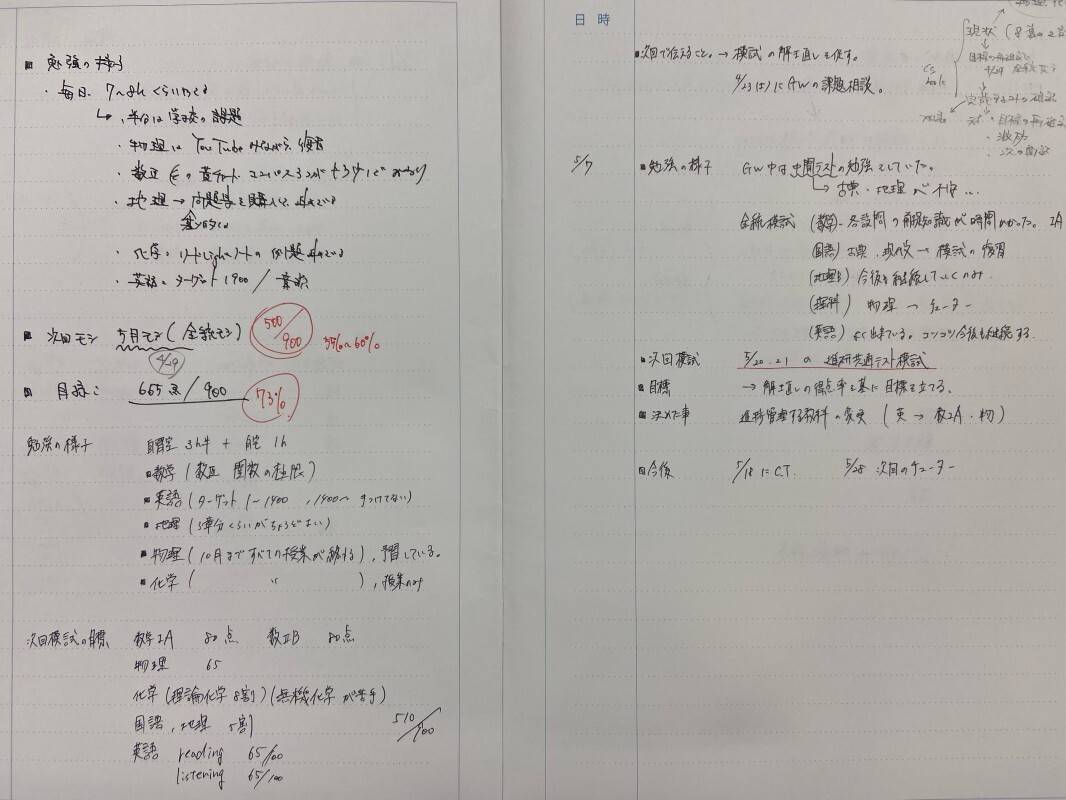 ■ 勉強の様子
・毎日 7〜8h くらいやる
↳ ・半分は学校の課題
・物理は YouTube みながら、復習
・数正 黄チャート
・地理 → 問題集を購入して、進めている
基本的な
・化学 リードLightノートの例題進めている
・英語 ターゲット1900 /
■ 次回モシ 5月モシ(全統モシ) 500/900 55%〜60%
4/29
■ 目標: 665点/900 73%
勉強の様子 自習室 3h半 + 自宅 1h
■数学(数Ⅲ 関数の極限)
■英語(ターゲット 1〜1400 , 1400〜 手つけてない)
■地理(5章分くらいがちょうどよい)
■物理(10月まですべての授業が終わる), 予習している。
■化学( 〃 ), 授業のみ
次回模試の目標 数学ⅠA 80点 数ⅡB 80点
物理 65
化学(理論化学8割)(無機化学が苦手)
国語, 地理 5割 510/900
英語 reading 65/100
listening 65/100
日 時
■次回で伝えること。→ 模試の解き直しを促す。
4/23(日)にGWの課題相談。
5/7 ■勉強の様子 GW中は中間テストの勉強をしていた。
↳ 古典・地理が不安…
全統模試 (数学) 各設問の前提知識が時間かかった。ⅡA
(国語) 古典、現代文 → 模試の復習
(地理B) 今後も継続していくのみ.
(理科) 物理 → チューター
(英語) よく出来ている。コツコツ今後も継続する
■次回模試 5/20.21 の 進研共通テスト模試
■目標 → 解き直しの得点率を基に目標を立てる。
■決めた事 進捗管理する教科の変更 (英 → 数ⅡA・物)
■今後 5/18にC.T. 5/28 次回のチューター
現状
目標の再設定
4/29 全統模試